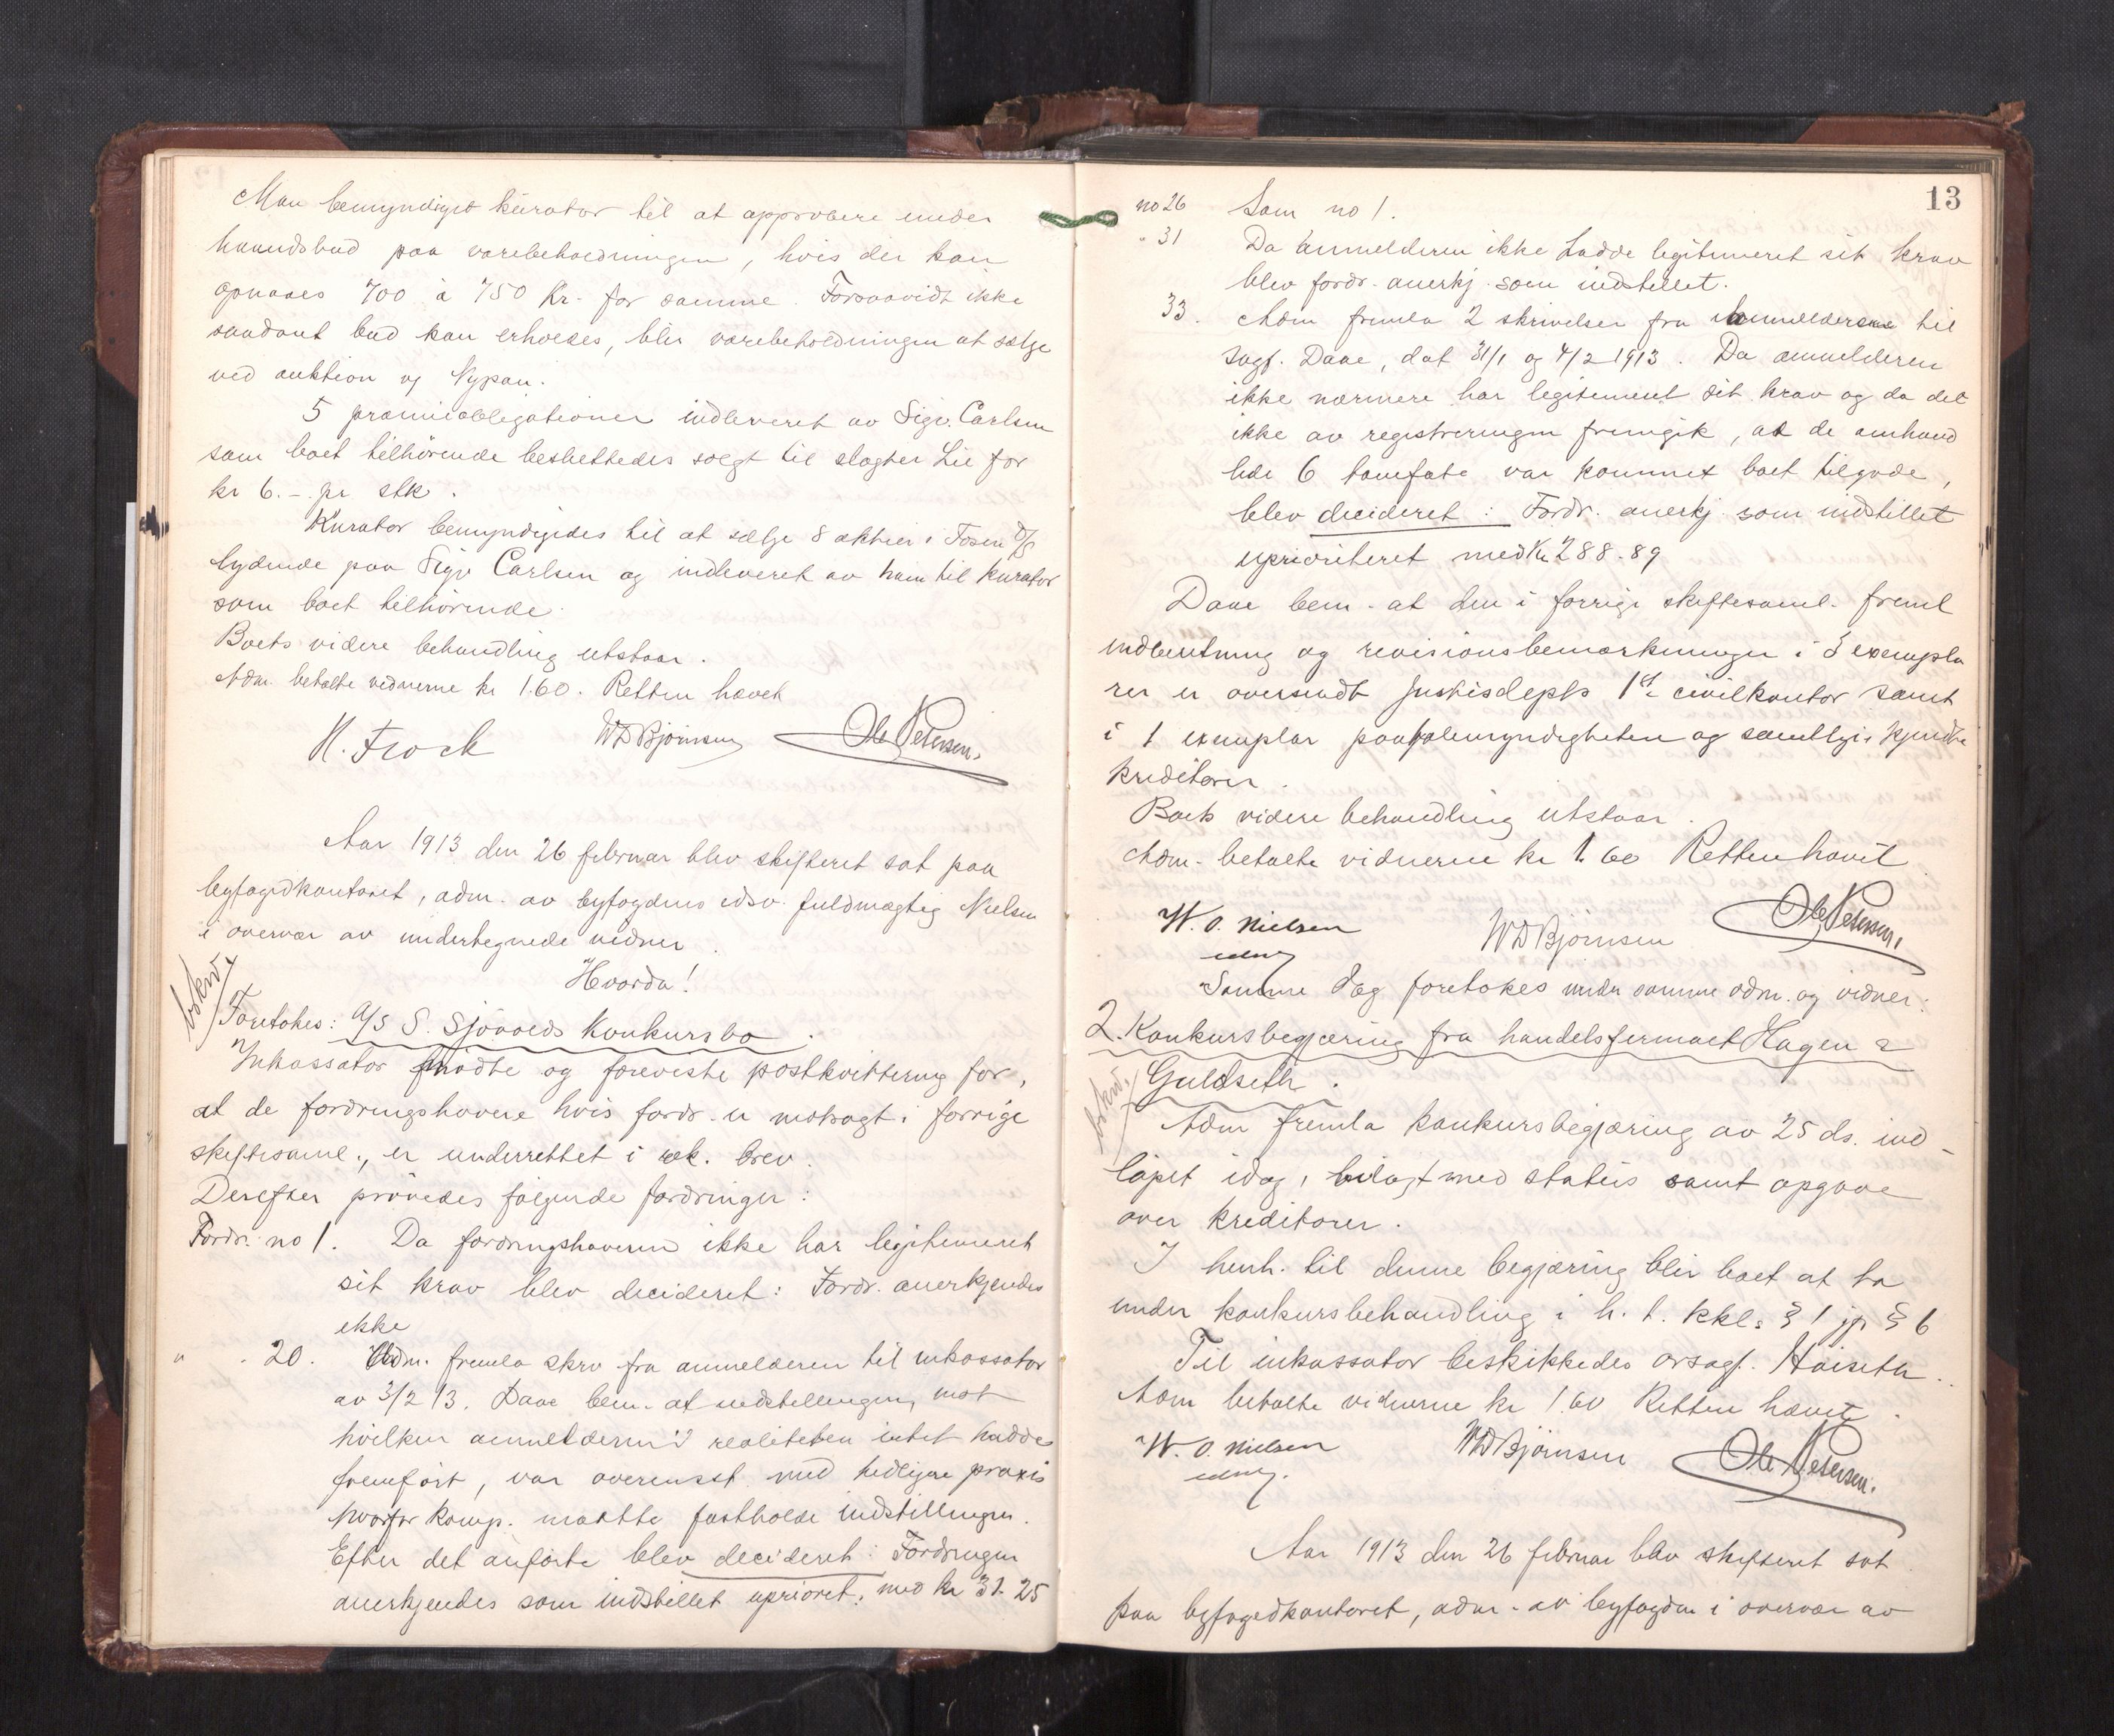 Man bemyndiget kurator til at approbere under
haandsbud paa varebeholdningen, hvis der kan
opnaaes 700 à 750 Kr. for samme. Forsaavidt ikke
saadant bud kan erholdes, blir varebeholdningen at sælge
ved auktion og Nypan.
5 præmieobligationer indleveret av Sigv. Carlsen
som boet tilhörende besluttedes solgt til slagter Lie for
kr 6.- pr stk.
Kurator bemyndigedes til at sælge 8 aktier i Fosen D/S
lydende paa Sigv Carlsen og indleveret av ham til kurator
som boet tilhörende.
Boets videre behandling utstaar.
Adm. betalte vidnerne kr 1.60. Retten hævet
H. Frock WDBjörnsen Ole Petersen.
Aar 1913 den 26 februar blev skifteret sat paa
byfogedkontoret, adm. av byfogdens edsv. fuldmægtig Nielsen
i overvær av undertegnede vidner.
Hvorda!
bskrv.
Foretokes: A/S S. Sjövolds Konkursbo.
Inkassator mödte og foreviste postkvittering for,
at de fordringshavere hvis fordr. er motsagt i forrige
skiftesaml., er underrettet i rek. brev.
Derefter prövedes fölgende fordringer:
Fordr. no 1. Da fordringshaveren ikke har legitimeret
sit krav blev decideret: Fordr. anerkjendes
ikke
" . 20. Adm. fremla skrv fra anmelderen til inkassator
av 3/2 13. Daae bem. at indstillingen, mot
hvilken anmelderen i realiteten intet hadde
fremfört, var overensst. med tidligere praxis
hvorfor komp. maatte fastholde indstillingen.
Efter det anförte blev decideret: Fordringen
anerkjendes som indstillet uprioret. med kr 31.25
13
no 26 Som no 1.
" 31 Da anmelderen ikke hadde legitimeret sit krav
blev fordr. anerkj. som indstillet.
33. Adm fremla 2 skrivelser fra anmelderen til
sagf. Daae, dat 31/1 og 4/2 1913. Da anmelderen
ikke nærmere har legitimeret sit krav og da det
ikke av registreringen fremgik, at de omhand
lede 6 tomfate var kommet boet tilgode,
blev decideret: Fordr. anerkj. som indstillet
uprioriteret med Kr 288.89
Daae bem. at den i forrige skiftesaml. freml
indberetning og revisionsbemærkninger i 3 exempla
rer er oversendt Justisdepts 1st civilkontor samt
i 1 exemplar paatalemyndigheten og samtlige kjendte
kreditorer.
Boets videre behandling utstaar.
Adm. betalte vidnerne kr 1.60 Retten hævet
W. O. Nielsen WDBjörnsen Ole Petersen.
edsv
Samme dag foretokes under samme adm. og vidner:
2. Konkursbegjæring fra handelsfirmaet Hagen &
Guldseth.
bskrv.
Adm fremla konkursbegjæring av 25 ds. ind-
löpet idag, bilagt med status samt opgave
over kreditorer.
I henh. til denne begjæring blir boet at ta
under konkursbehandling i h. t. kkls § 1 jp § 6
Til inkassator beskikkedes orsagf. Höiseth.
Adm betalte vidnerne kr 1.60 Retten hævet.
W. O. Nielsen WDBjörnsen Ole Petersen.
edsv.
Aar 1913 den 26 februar blev skifteret sat
paa byfogedkontoret, adm. av byfogden i overvær av